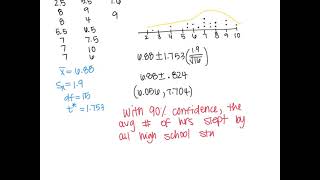 8 9 9
8 4
5.5 6.5
7 7.5
7 10
7 6
x̄ = 6.88
Sx = 1.9
df = 15
t* = 1.753
2 3 4 5 6 7 8 9 10
6.88 ± 1.753 (1.9/√16)
6.88 ± .824
(6.056, 7.704)
With 90% confidence, the
avg # of hrs slept by
all high school stu